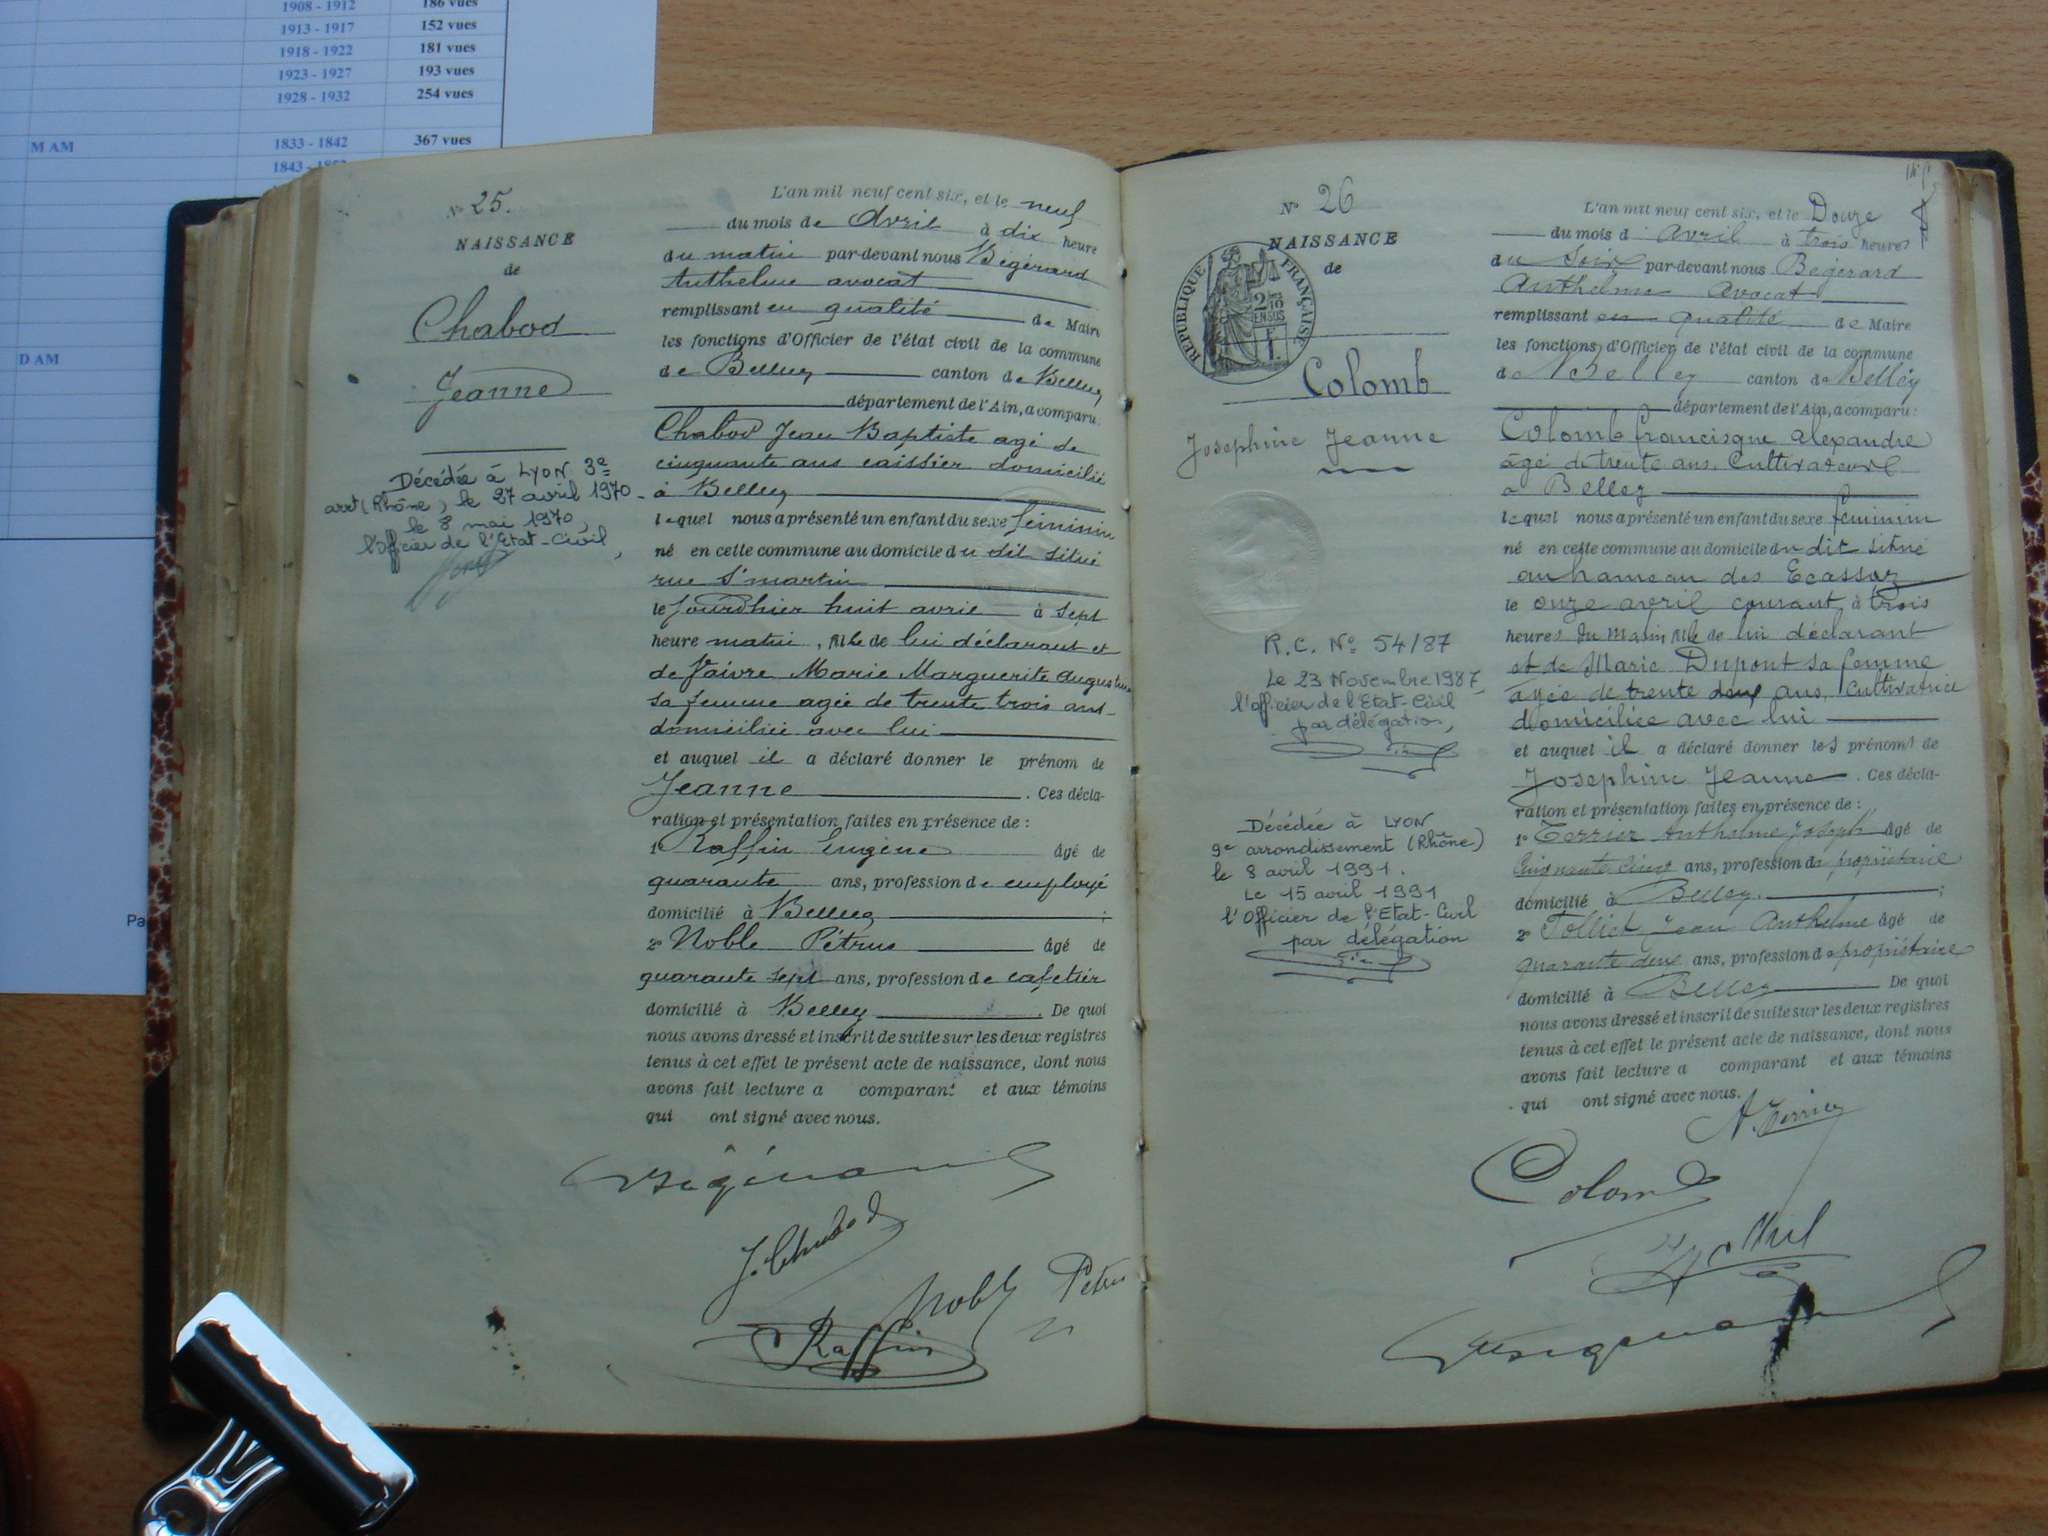 1908 - 1912 186 vues
1913 - 1917 152 vues
1918 - 1922 181 vues
1923 - 1927 193 vues
1928 - 1932 254 vues
M AM 1833 - 1842 367 vues
1843 -
D AM
Pa
N° 25.
NAISSANCE
de
Chabod
Jeanne
Décédée à LYON 3e
arrt (Rhône), le 27 avril 1970
le 8 mai 1970,
l'Officier de l'Etat-Civil,
L'an mil neuf cent six, et le neuf
du mois de Avril à dix heure
du matin par-devant nous Begérard
Anthelme avocat
remplissant en qualité de Maire
les fonctions d'Officier de l'état civil de la commune
de Belley canton de Belley
département de l'Ain, a comparu:
Chabod Jean Baptiste agé de
cinquante ans caissier domicilié
à Belley
lequel nous a présenté un enfant du sexe féminin
né en cette commune au domicile du dit situé
rue St martin
le jourdhier huit avril à sept
heure matin, fille de lui déclarant et
de Vaivre Marie Marguerite Augustine
sa femme agée de trente trois ans
domiciliée avec lui
et auquel il a déclaré donner le prénom de
Jeanne . Ces décla-
ration et présentation faites en présence de :
1° Raffin Eugène âgé de
quarante ans, profession de employé
domicilié à Belley ;
2° Noble Pétrus âgé de
quarante sept ans, profession de cafetier
domicilié à Belley . De quoi
nous avons dressé et inscrit de suite sur les deux registres
tenus à cet effet le présent acte de naissance, dont nous
avons fait lecture a comparant et aux témoins
qui ont signé avec nous.
Begérard
J. Chabod
Noble Pétrus
Raffin
N° 26
NAISSANCE
de
RÉPUBLIQUE FRANÇAISE
Colomb
Josephine Jeanne
R.C. N° 54/87
Le 23 Novembre 1987,
l'officier de l'Etat-Civil
par délégation,
Décédée à LYON
9e arrondissement (Rhône)
le 8 avril 1991.
Le 15 avril 1991
l'Officier de l'Etat-Civil
par délégation
L'an mil neuf cent six, et le Douze
du mois d Avril à trois heures
du Soir par-devant nous Begérard
Anthelme Avocat
remplissant en qualité de Maire
les fonctions d'Officier de l'état civil de la commune
de Belley canton de Belley
département de l'Ain, a comparu:
Colomb francisque alexandre
âgé de trente ans, Cultivateur
a Belley
lequel nous a présenté un enfant du sexe feminin
né en cette commune au domicile du dit situé
au hameau des Ecassaz
le onze avril courant, à trois
heures du Matin fille de lui déclarant
et de Marie Dupont sa femme
âgée de trente deux ans, Cultivatrice
domiciliée avec lui
et auquel il a déclaré donner les prénoms de
Josephine Jeanne . Ces décla-
ration et présentation faites en présence de :
1° Terrier Anthelme Joseph âgé de
Cinquante cinq ans, profession de propriétaire
domicilié à Belley. ;
2° Tolliet Jean Anthelme âgé de
quarante deux ans, profession de propriétaire
domicilié à Belley De quoi
nous avons dressé et inscrit de suite sur les deux registres
tenus à cet effet le présent acte de naissance, dont nous
avons fait lecture a comparant et aux témoins
qui ont signé avec nous.
A. Terrier
Colomb
Begérard